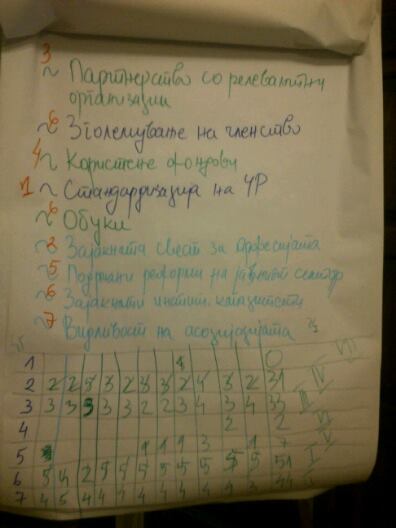 3
~ Партнерство со релевантни
организации
6 ~ Зголемување на членство
4 ~ Користење фондови
1 ~ Стандардизација на ЧР
6 ~ Обуки
2 ~ Зајакната свест за професијата
5 ~ Поддржани реформи на јавниот сектор
6 ~ Зајакнати инстит. капацитети
7 ~ Видливост на асоцијацијата
1 1 0 VII
2 2 2 5 3 2 3 3 2 4 3 2 31 IV
3 3 3 3 3 3 2 2 3 4 3 4 33 III
4 2 2 VI
5 1 1 1 3 1 7 V
6 5 4 2 5 5 5 5 5 5 5 5 51 I
7 4 5 4 4 4 4 4 4 4 4 3 44 II